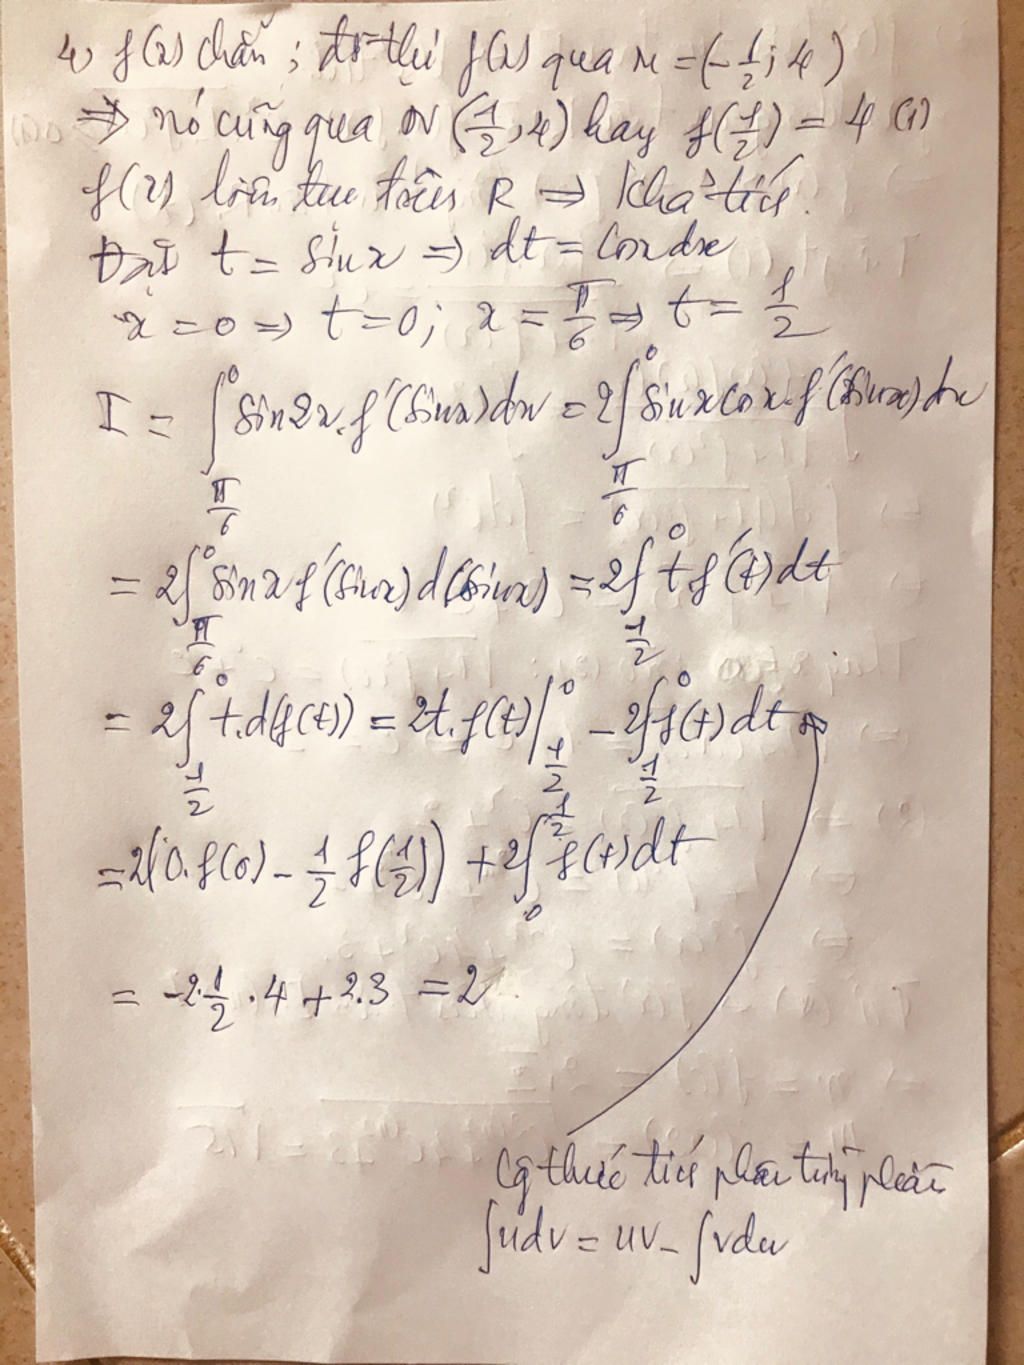 4, f(x) chẵn ; đồ thị f(x) qua M = (-1/2; 4)
⇒ nó cũng qua N (1/2, 4) hay f(1/2) = 4 (1)
f(x) liên tục trên R ⇒ khả tích.
Đặt t = sinx ⇒ dt = cosxdx
x = 0 ⇒ t = 0; x = π/6 ⇒ t = 1/2
I = ∫_{π/6}^{0} sin2x.f'(sinx)dx = 2∫_{π/6}^{0} sinxcosx.f'(sinx)dx
= 2∫_{π/6}^{0} sinx f'(sinx)d(sinx) = 2∫_{1/2}^{0} t f'(t)dt
= 2∫_{1/2}^{0} t.d(f(t)) = 2t.f(t)|_{1/2}^{0} - 2∫_{1/2}^{0} f(t)dt
= 2(0.f(0) - 1/2 f(1/2)) + 2∫_{0}^{1/2} f(t)dt
= -2.1/2 .4 + 2.3 = 2
Cg thức tích phân từng phần
∫udv = uv - ∫vdu